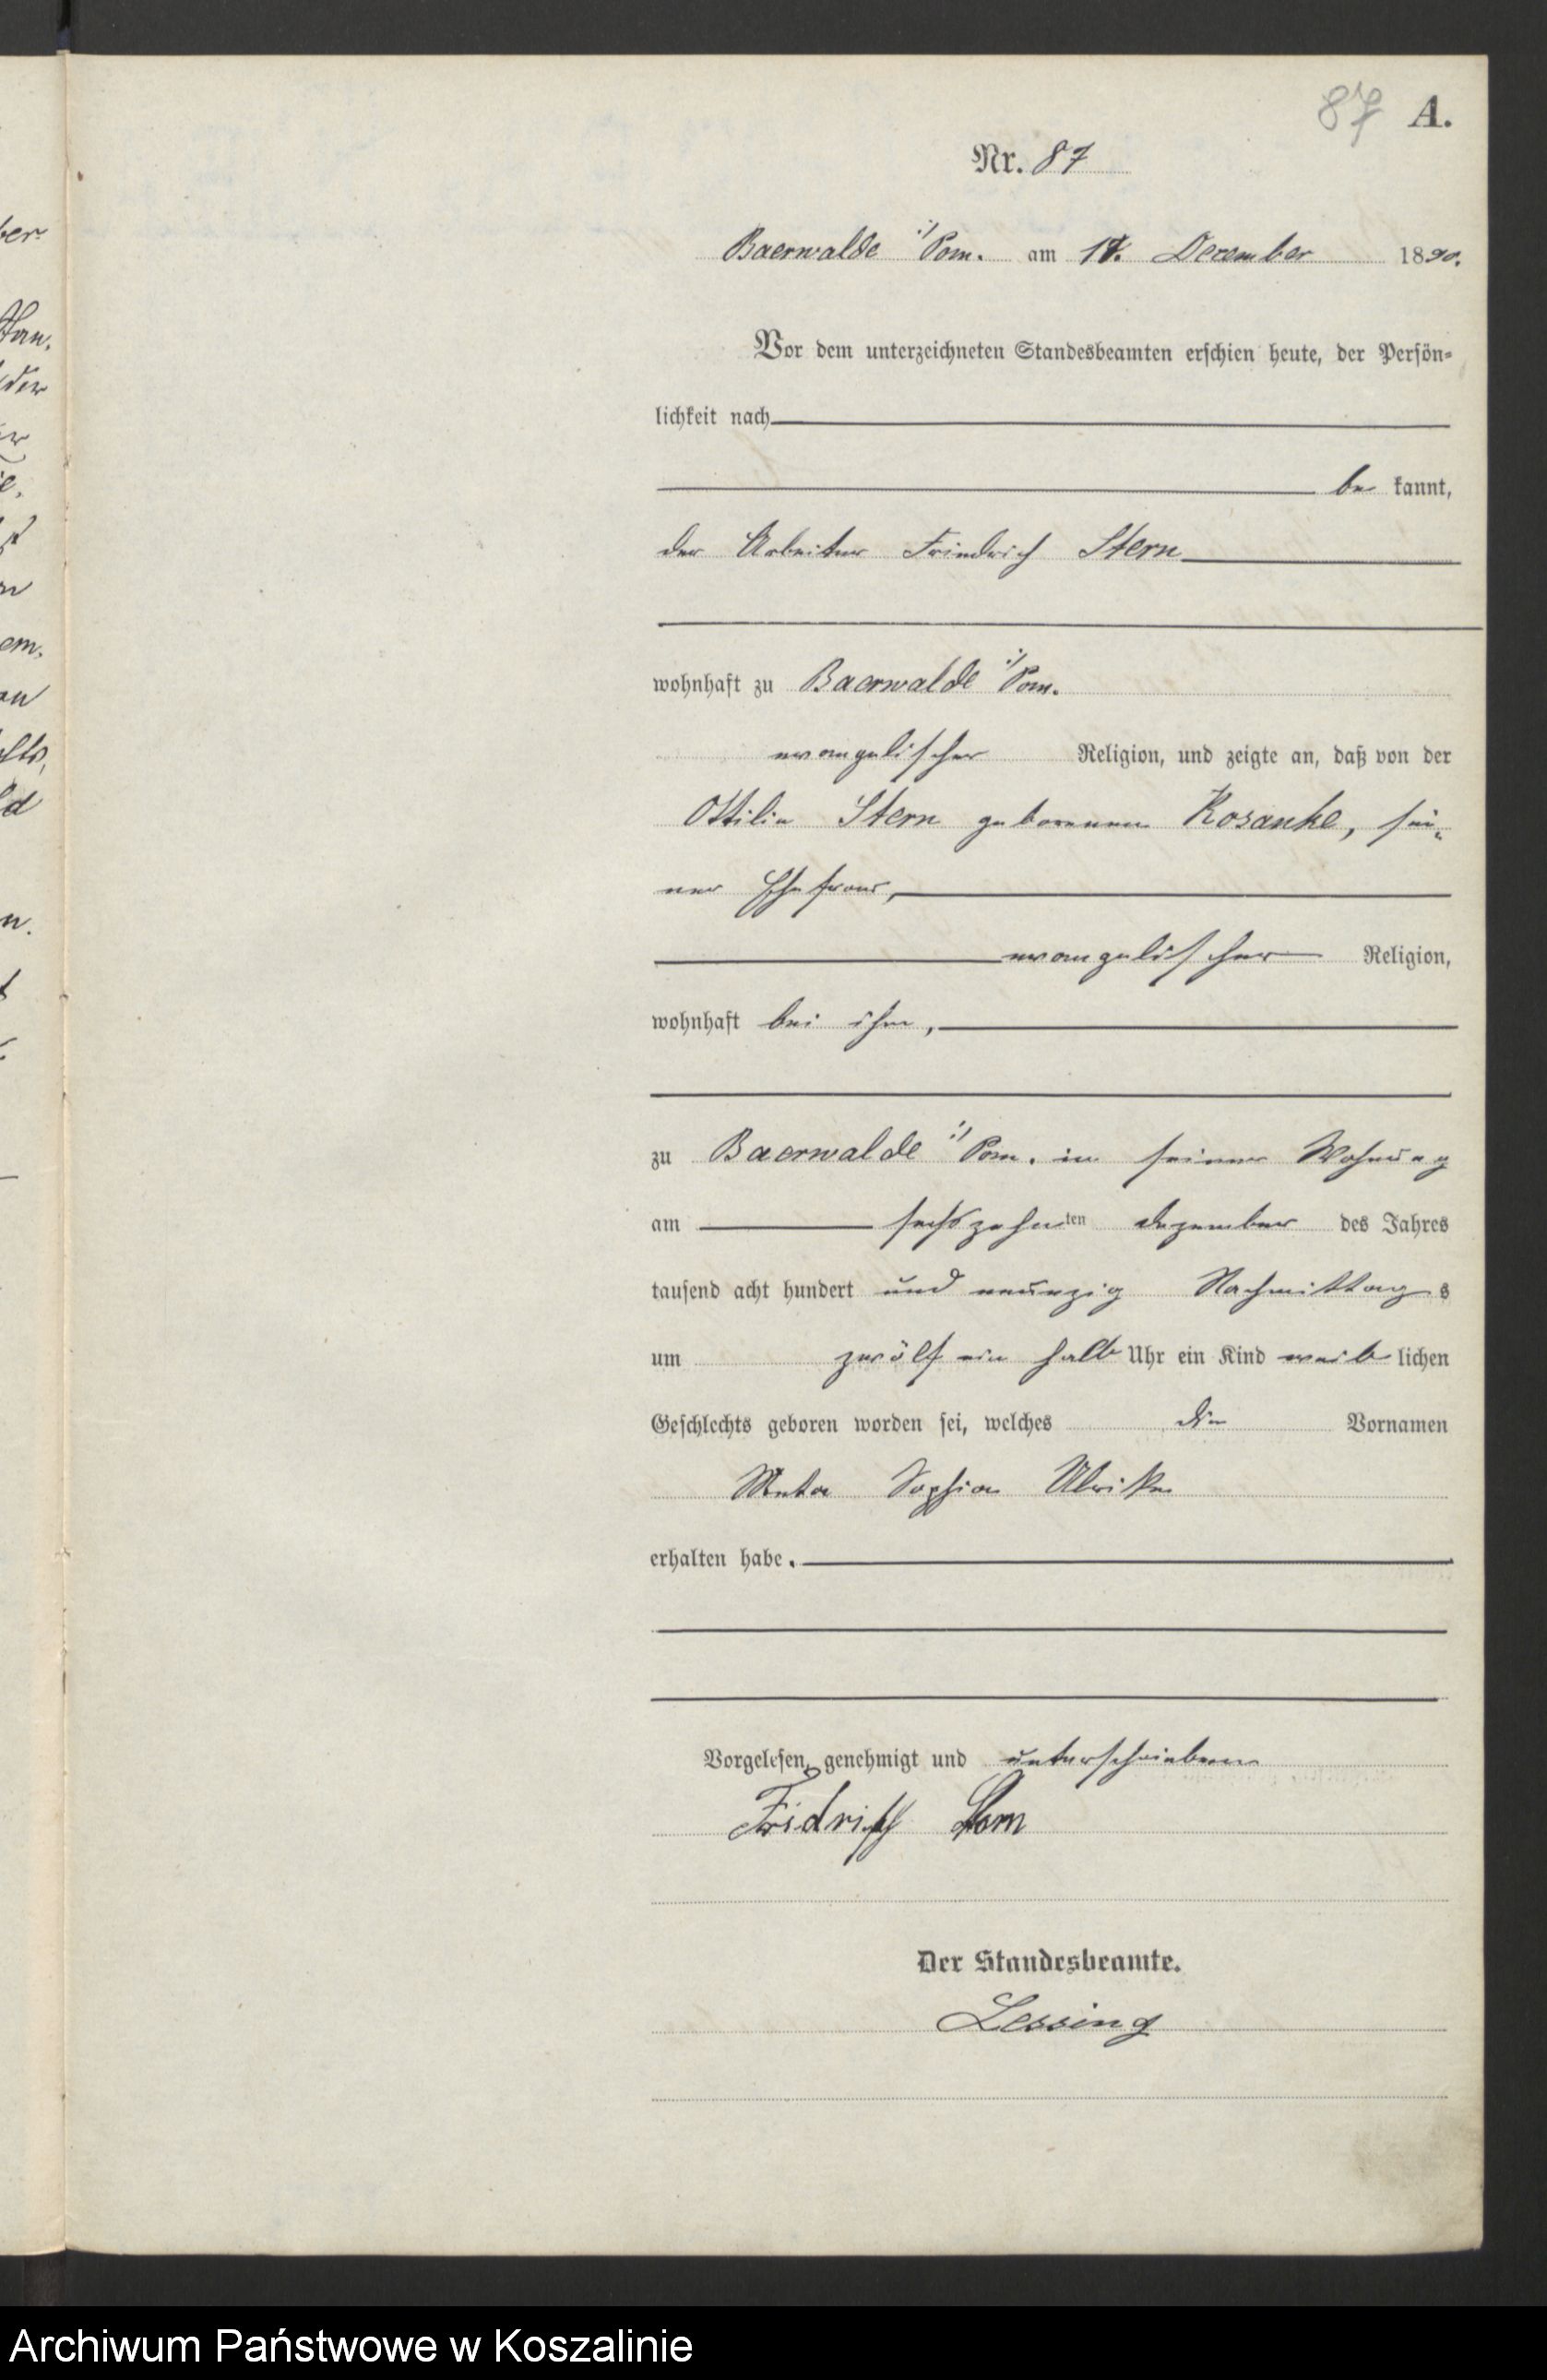 87 A.
Nr. 87
Baerwalde i/Pom. am 17. December 1890.
Vor dem unterzeichneten Standesbeamten erschien heute, der Persön-
lichkeit nach
be kannt,
der Arbeiter Friedrich Stern
wohnhaft zu Baerwalde i/Pom.
evangelischer Religion, und zeigte an, daß von der
Ottilie Stern geborenen Rosanke, sei-
ner Ehefrau,
evangelischer Religion,
wohnhaft bei ihm,
zu Baerwalde i/Pom. in seiner Wohnung
am sechszehnten Dezember des Jahres
tausend acht hundert und neunzig Nachmittags
um zwölf ein halb Uhr ein Kind weiblichen
Geschlechts geboren worden sei, welches die Vornamen
Meta Sophia Ulrike
erhalten habe.
Vorgelesen, genehmigt und unterschrieben
Fridrich Stern
Der Standesbeamte.
Lessing
Archiwum Państwowe w Koszalinie